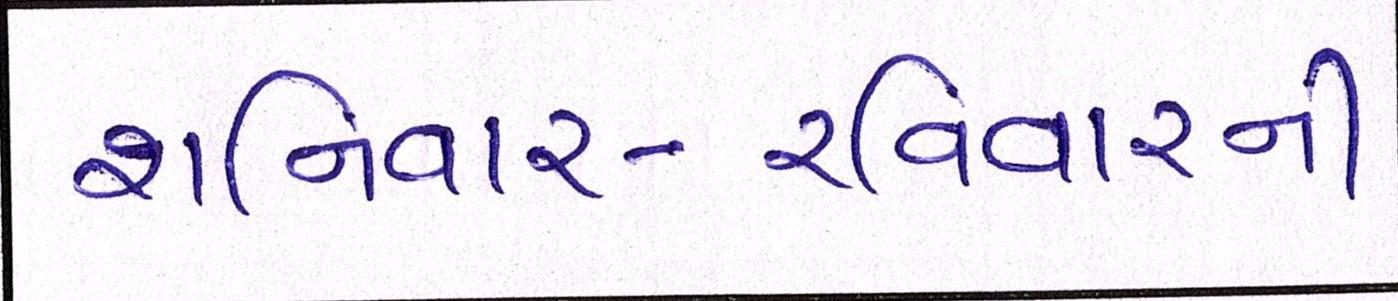 શનિવાર-રવિવારની